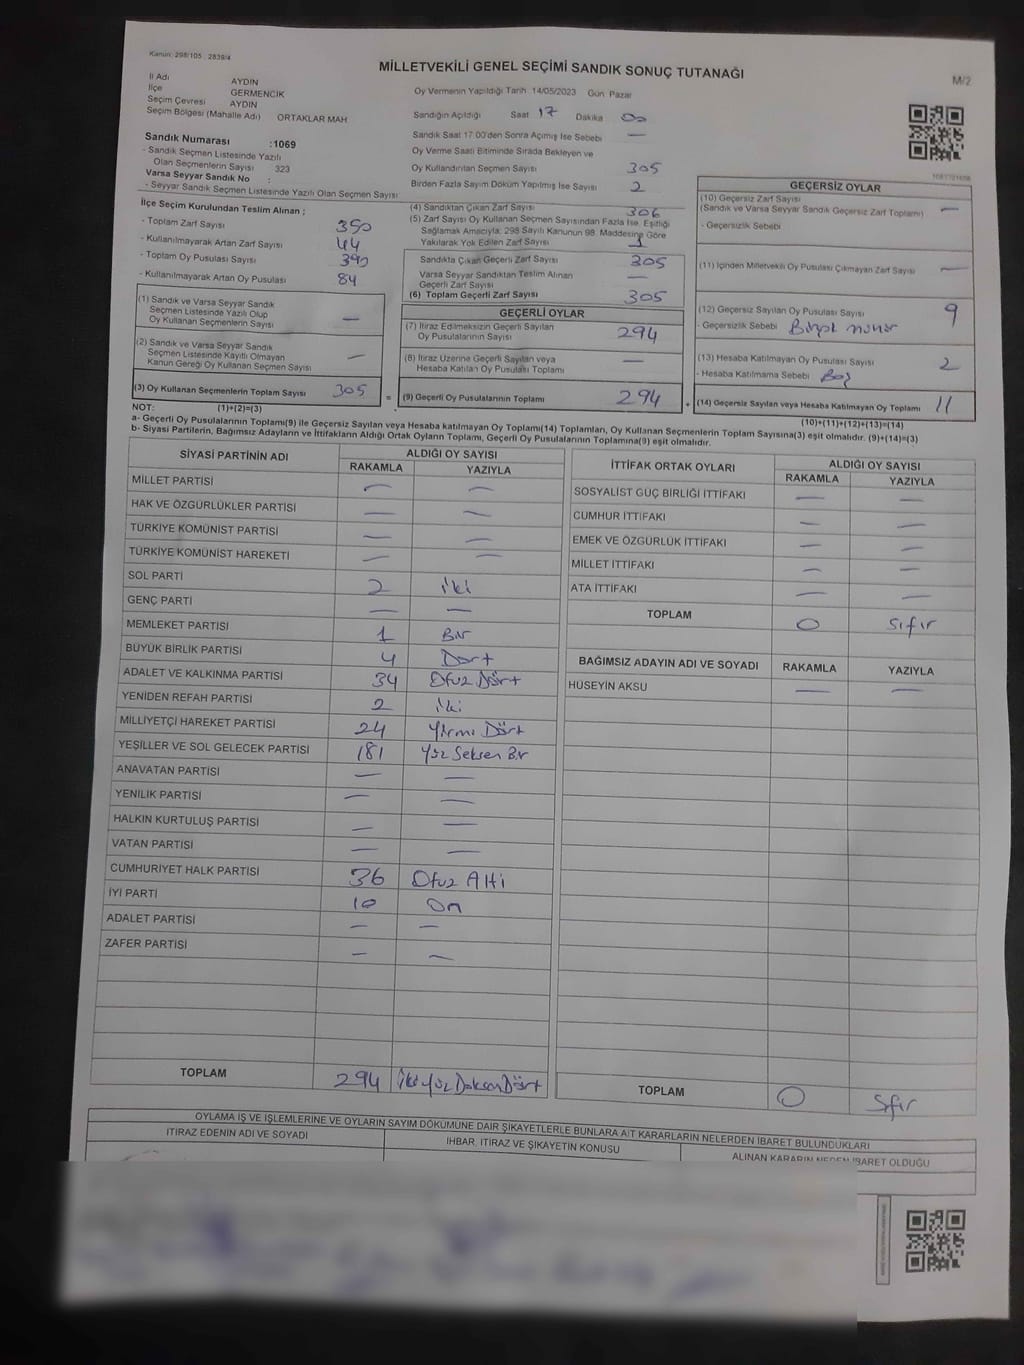 Kanun: 298/105 , 2839/4
MİLLETVEKİLİ GENEL SEÇİMİ SANDIK SONUÇ TUTANAĞI
M/2
İl Adı AYDIN
İlçe GERMENCİK
Seçim Çevresi AYDIN
Seçim Bölgesi (Mahalle Adı) ORTAKLAR MAH
Sandık Numarası :1069
- Sandık Seçmen Listesinde Yazılı
Olan Seçmenlerin Sayısı 323
Varsa Seyyar Sandık No :
- Seyyar Sandık Seçmen Listesinde Yazılı Olan Seçmen Sayısı
Oy Vermenin Yapıldığı Tarih 14/05/2023 Gün Pazar
Sandığın Açıldığı Saat 17 Dakika 00
Sandık Saat 17:00'den Sonra Açılmış İse Sebebi —
Oy Verme Saati Bitiminde Sırada Bekleyen ve
Oy Kullandırılan Seçmen Sayısı 305
Birden Fazla Sayım Döküm Yapılmış İse Sayısı 2
İlçe Seçim Kurulundan Teslim Alınan ;
- Toplam Zarf Sayısı 350
- Kullanılmayarak Artan Zarf Sayısı 44
- Toplam Oy Pusulası Sayısı 390
- Kullanılmayarak Artan Oy Pusulası 84
(1) Sandık ve Varsa Seyyar Sandık
Seçmen Listesinde Yazılı Olup
Oy Kullanan Seçmenlerin Sayısı —
(2) Sandık ve Varsa Seyyar Sandık
Seçmen Listesinde Kayıtlı Olmayan
Kanun Gereği Oy Kullanan Seçmen Sayısı —
(3) Oy Kullanan Seçmenlerin Toplam Sayısı 305 =
(4) Sandıktan Çıkan Zarf Sayısı 306
(5) Zarf Sayısı Oy Kullanan Seçmen Sayısından Fazla İse, Eşitliği
Sağlamak Amacıyla; 298 Sayılı Kanunun 98. Maddesine Göre
Yakılarak Yok Edilen Zarf Sayısı 1
Sandıkta Çıkan Geçerli Zarf Sayısı 305
Varsa Seyyar Sandıktan Teslim Alınan
Geçerli Zarf Sayısı —
(6) Toplam Geçerli Zarf Sayısı 305
GEÇERLİ OYLAR
(7) İtiraz Edilmeksizin Geçerli Sayılan
Oy Pusulalarının Sayısı 294
(8) İtiraz Üzerine Geçerli Sayılan veya
Hesaba Katılan Oy Pusulası Toplamı —
(9) Geçerli Oy Pusulalarının Toplamı 294 +
GEÇERSİZ OYLAR
(10) Geçersiz Zarf Sayısı
(Sandık ve Varsa Seyyar Sandık Geçersiz Zarf Toplamı) —
- Geçersizlik Sebebi
(11) İçinden Milletvekili Oy Pusulası Çıkmayan Zarf Sayısı —
(12) Geçersiz Sayılan Oy Pusulası Sayısı 9
- Geçersizlik Sebebi
(13) Hesaba Katılmayan Oy Pusulası Sayısı 2
- Hesaba Katılmama Sebebi Boş
(14) Geçersiz Sayılan veya Hesaba Katılmayan Oy Toplamı 11
NOT: (1)+(2)=(3)
(10)+(11)+(12)+(13)=(14)
a- Geçerli Oy Pusulalarının Toplamı(9) ile Geçersiz Sayılan veya Hesaba Katılmayan Oy Toplamı(14) Toplamları, Oy Kullanan Seçmenlerin Toplam Sayısına(3) eşit olmalıdır. (9)+(14)=(3)
b- Siyasi Partilerin, Bağımsız Adayların ve İttifakların Aldığı Ortak Oyların Toplamı, Geçerli Oy Pusulalarının Toplamına(9) eşit olmalıdır.
SİYASİ PARTİNİN ADI ALDIĞI OY SAYISI
RAKAMLA YAZIYLA
MİLLET PARTİSİ — —
HAK VE ÖZGÜRLÜKLER PARTİSİ — —
TÜRKİYE KOMÜNİST PARTİSİ — —
TÜRKİYE KOMÜNİST HAREKETİ — —
SOL PARTİ 2 iki
GENÇ PARTİ — —
MEMLEKET PARTİSİ 1 Bir
BÜYÜK BİRLİK PARTİSİ 4 Dört
ADALET VE KALKINMA PARTİSİ 34 Otuz Dört
YENİDEN REFAH PARTİSİ 2 iki
MİLLİYETÇİ HAREKET PARTİSİ 24 Yirmi Dört
YEŞİLLER VE SOL GELECEK PARTİSİ 181 Yüz Seksen Bir
ANAVATAN PARTİSİ — —
YENİLİK PARTİSİ — —
HALKIN KURTULUŞ PARTİSİ — —
VATAN PARTİSİ — —
CUMHURİYET HALK PARTİSİ 36 Otuz Altı
İYİ PARTİ 10 On
ADALET PARTİSİ — —
ZAFER PARTİSİ — —
TOPLAM 294 İki Yüz Doksan Dört
İTTİFAK ORTAK OYLARI ALDIĞI OY SAYISI
RAKAMLA YAZIYLA
SOSYALİST GÜÇ BİRLİĞİ İTTİFAKI — —
CUMHUR İTTİFAKI — —
EMEK VE ÖZGÜRLÜK İTTİFAKI — —
MİLLET İTTİFAKI — —
ATA İTTİFAKI — —
TOPLAM 0 Sıfır
BAĞIMSIZ ADAYIN ADI VE SOYADI RAKAMLA YAZIYLA
HÜSEYİN AKSU — —
TOPLAM 0 Sıfır
OYLAMA İŞ VE İŞLEMLERİNE VE OYLARIN SAYIM DÖKÜMÜNE DAİR ŞİKAYETLERLE BUNLARA AİT KARARLARIN NELERDEN İBARET BULUNDUKLARI
İTİRAZ EDENİN ADI VE SOYADI
İHBAR, İTİRAZ VE ŞİKAYETİN KONUSU
ALINAN KARARIN NEDEN İBARET OLDUĞU